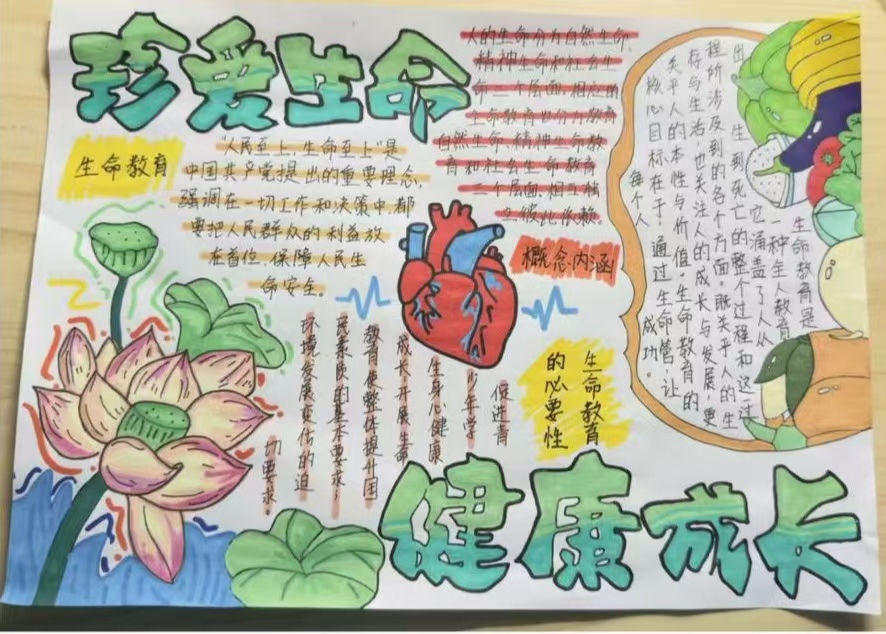 珍爱生命
生命教育
“人民至上,生命至上”是
中国共产党提出的重要理念,
强调在一切工作和决策中,都
要把人民群众的利益放
在首位、保障人民生
命安全。
人的生命分为自然生命、
精神生命和社会生
命三个层面,相应的
生命教育也分为教育
自然生命、精神生命教
育和社会生命教育
三个层面,相互独
立彼此依赖。
概念内涵
生命教育是
一种全人教育
它涵盖了人从
出 生到死亡的整个过程和这一过
程所涉及到的各个方面。既关乎人的生
存与生活,也关注人的成长与发展,更
关乎人的本性与价值。生命教育的
核心目标在于,通过生命管,让
每个人 成功。
生命教育
的必要性
促进青
少年学
生身心健康
成长;开展生命
教育使整体提升国
民素质的基本要求;
环境发展变化的迫
切要求。
健康成长